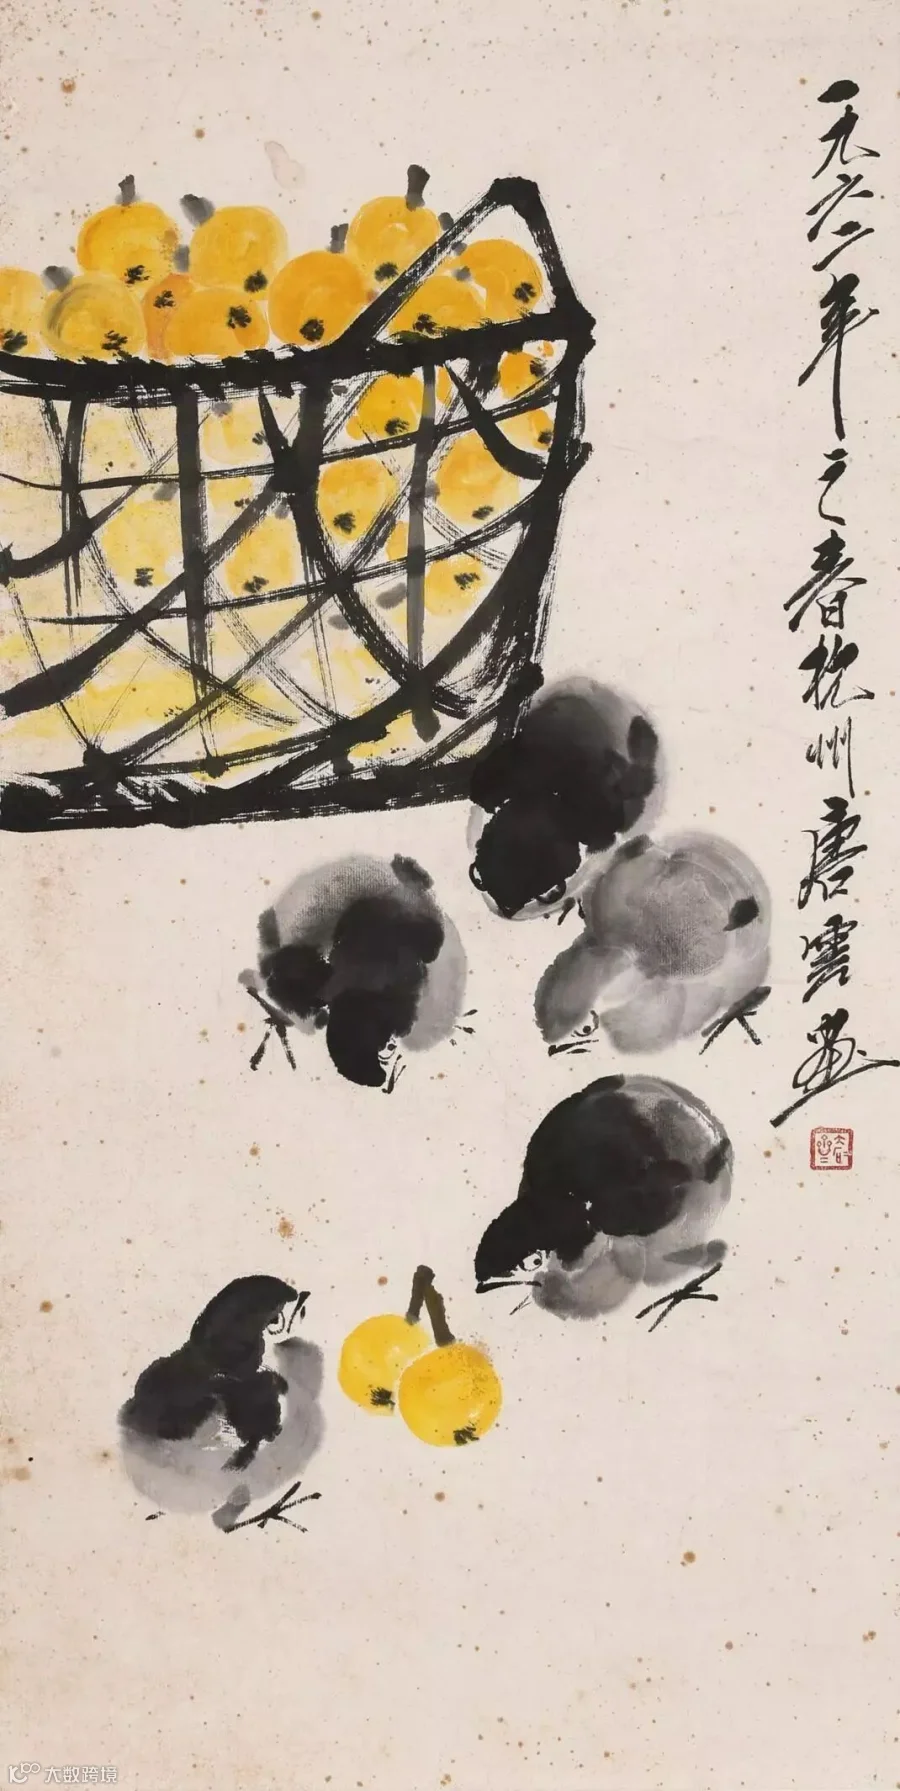 一九六二年之春杭州唐雲画
大数跨境